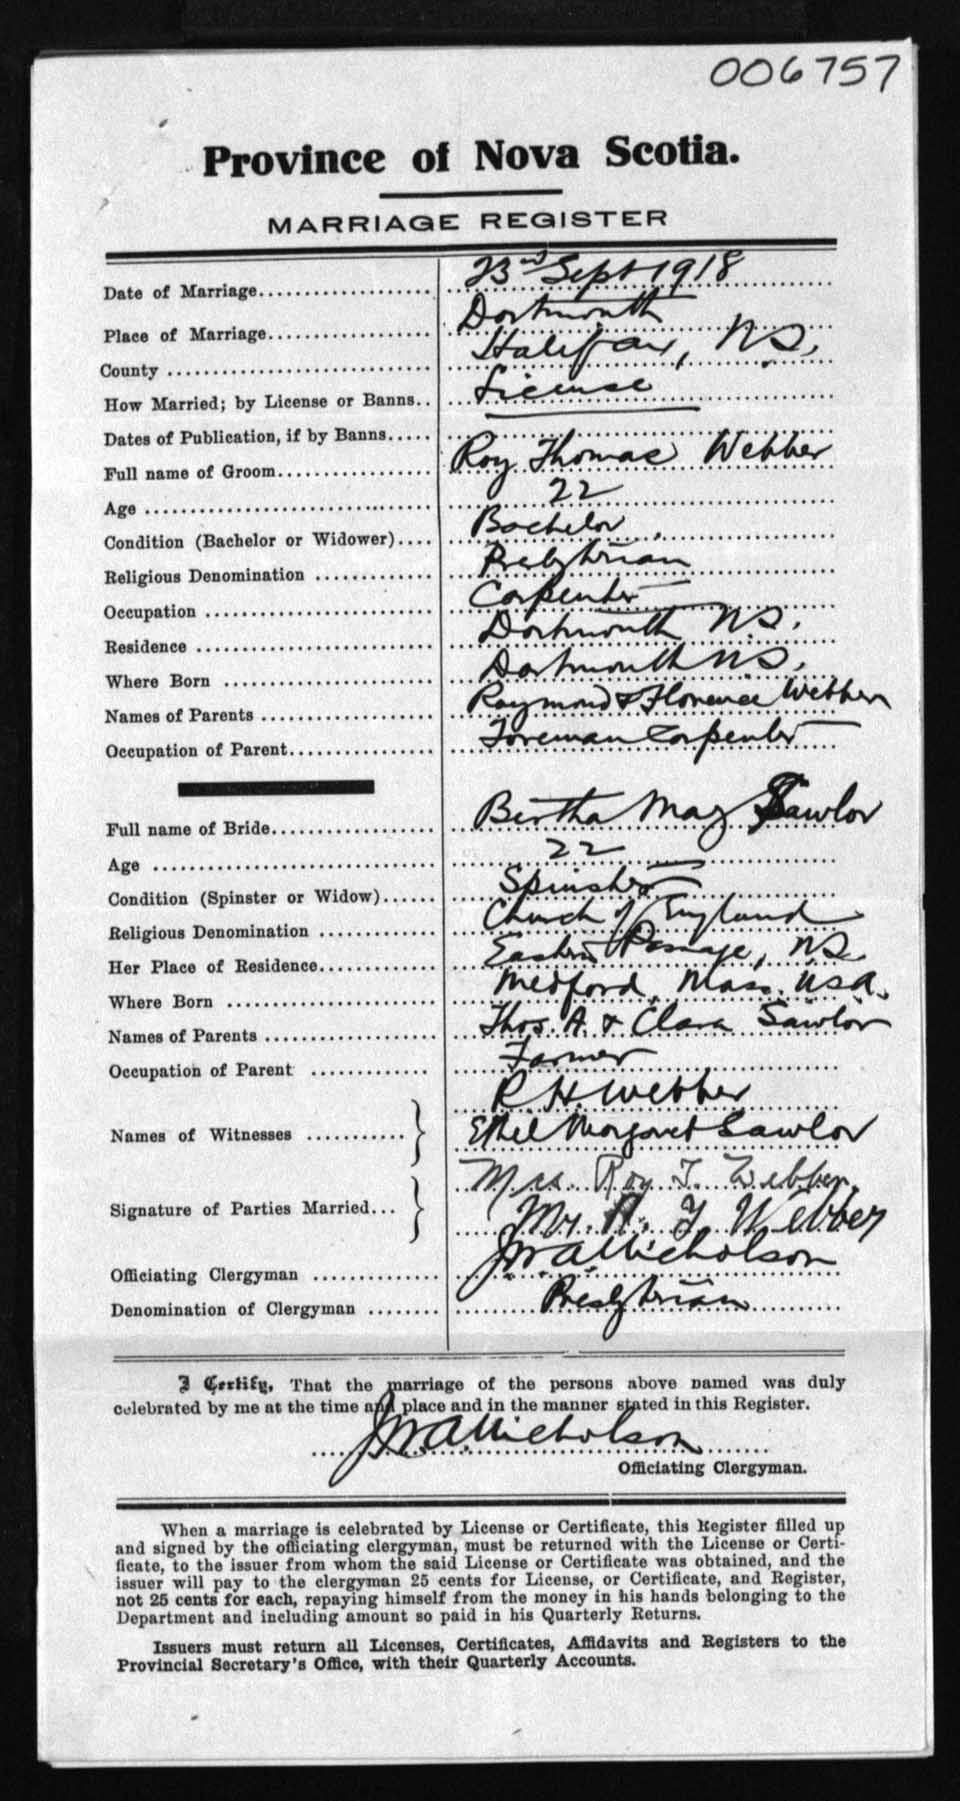 006757
Province of Nova Scotia.
MARRIAGE REGISTER
Date of Marriage 23rd Sept 1918
Place of Marriage Dartmouth
County Halifax, N.S.
How Married; by License or Banns License
Dates of Publication, if by Banns
Full name of Groom Roy Thomas Webber
Age 22
Condition (Bachelor or Widower) Bachelor
Religious Denomination Presbytrian
Occupation Carpenter
Residence Dartmouth N.S.
Where Born Dartmouth N.S.
Names of Parents Raymond & Florence Webber
Occupation of Parent Foreman Carpenter
Full name of Bride Bertha May Sawlor
Age 22
Condition (Spinster or Widow) Spinster
Religious Denomination Church of England
Her Place of Residence Eastern Passage, N.S.
Where Born Medford, Mass. U.S.A.
Names of Parents Thos. A. & Clara Sawlor
Occupation of Parent Farmer
R. H. Webber
Names of Witnesses Ethel Margaret Sawlor
Mrs. Roy T. Webber.
Signature of Parties Married Mr. R. T. Webber
Officiating Clergyman J. W. A. Nicholson
Denomination of Clergyman Presbytrian
I Certify, That the marriage of the persons above named was duly
celebrated by me at the time and place and in the manner stated in this Register.
J. W. A. Nicholson
Officiating Clergyman.
When a marriage is celebrated by License or Certificate, this Register filled up
and signed by the officiating clergyman, must be returned with the License or Certi-
ficate, to the issuer from whom the said License or Certificate was obtained, and the
issuer will pay to the clergyman 25 cents for License, or Certificate, and Register,
not 25 cents for each, repaying himself from the money in his hands belonging to the
Department and including amount so paid in his Quarterly Returns.
Issuers must return all Licenses, Certificates, Affidavits and Registers to the
Provincial Secretary's Office, with their Quarterly Accounts.